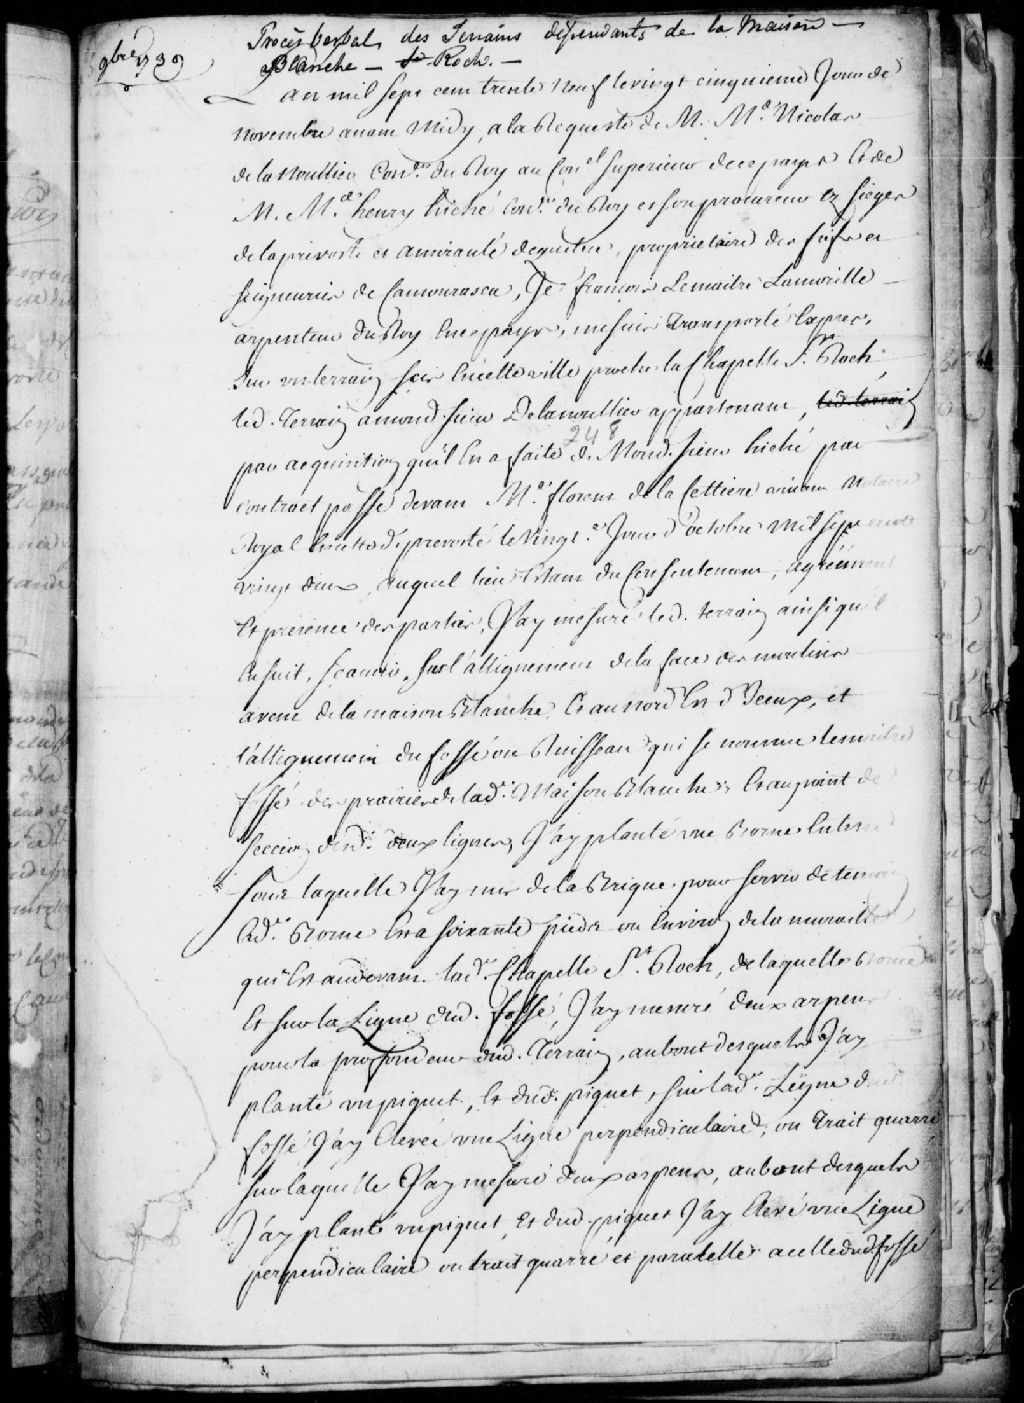 9bre 1739
Procès verbal des Terrains dépendants de la Maison
Blanche — St Roch. —
an mil sept cent trente neuf le vingt cinquieme Jour de
novembre avant midy, a la Requeste de M. Me Nicolas
de la Noullier Con.er du Roy au Con.el Superieur de ce pays Et de
M. Me henry hiché Con.er du Roy et son procureur es sieges
de la prevosté et amirauté de quebec, proprietaires des fiefs et
seigneuries de Camourasca, Je françois Lemaitre Lamorille
arpenteur du Roy En ce pays, me suis Transporté Expres,
sur un terrain scis En cette ville proche la Chapelle St. Roch,
led. Terrain a mond. sieur Delanoullier appartenant, led. terrain
248
par acquisition qu'il En a faite de Mond. sieur hiché par
contract passé devant Me. florent de la Cettiere vivant Notaire
Royal En cette d. prevosté le vingt.e Jour d'octobre mil sept cents
vingt deux, auquel lieu Estant du Consentement, agrément
Et présence des parties, J'ay mesuré led. terrain ainsi qu'il
En suit, sçavoir, sur l'allignement de la face des moulins
avent de la maison Blanche, Et au nord Est d'Iceux, et
l'allignement du fossé ou Ruisseau qui se nomme le maitre
fossé des prairies de lad. Maison Blanche; Et au point de
section desd. deux lignes, J'ay planté une Borne En terre
sous laquelle J'ay mis de la Brique pour servir de temoin
lad. Borne Est a soixante pieds ou Environ de la muraille
qui Est au devant lad. Chapelle St. Roch, de laquelle Borne
Et sur la Ligne dud. fossé, J'ay mesuré deux arpens
pour la profondeur dud. Terrain, au bout desquels J'ay
planté un piquet, Et dud. piquet, sur lad. Ligne dud.
fossé J'ay Elevée une Ligne perpendiculaire, ou Trait quarré
sur laquelle J'ay mesuré deux arpens, au bout desquels
J'ay planté un piquet, Et dud. piquet J'ay Elevé une Ligne
perpendiculaire ou trait quarré et paralelle a celle dud. fossé